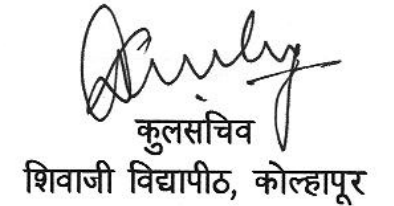 कुलसचिव
शिवाजी विद्यापीठ, कोल्हापूर